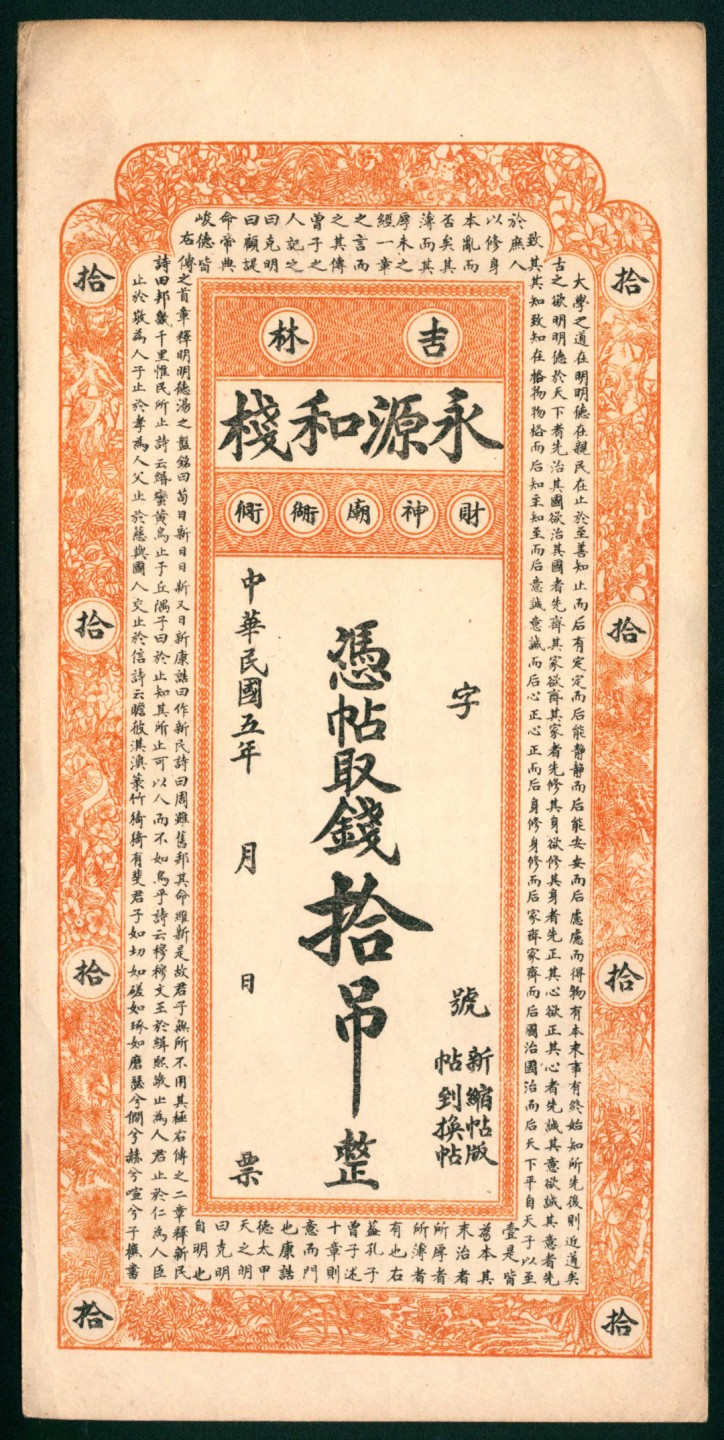 吉林
永源和棧
財神廟衚衕
字
號
新縮帖版
帖到換帖
憑帖取錢拾吊整
中華民國五年 月 日 票
拾
拾
拾
拾
拾
拾
拾
拾
大學之道在明明德在親民在止於至善知止而后有定定而后能靜靜而后能安安而后慮慮而得物有本末事有終始知所先後則近道矣
古之欲明明德於天下者先治其國欲治其國者先齊其家欲齊其家者先修其身欲修其身者先正其心欲正其心者先誠其意欲誠其意者先
致其其知致知在格物物格而后知至知至而后意誠意誠而后心正心正而后身修身修而后家齊家齊而后國治國治而后天下平自天子以至
於庶人
壹是皆
以修身
為本其
本亂而
末治者
否矣其
所厚者
薄而其
所薄者
厚未之
有也右
經一章
蓋孔子
之言而
曾子述
之其傳
十章則
曾子之
意而門
人記之
也康誥
曰克明
德太甲
曰顧諟
天之明
命帝典
曰克明
峻德皆
自明也
右傳之首章釋明明德湯之盤銘曰苟日新日日新又日新康誥曰作新民詩曰周雖舊邦其命維新是故君子無所不用其極右傳之二章釋新民
詩田邦畿千里惟民所止詩云緡蠻黃鳥止于丘隅子曰於止知其所止可以人而不如鳥乎詩云穆穆文王於緝熙敬止為人君止於仁為人臣
止於敬為人子止於孝為人父止於慈與國人交止於信詩云瞻彼淇澳菉竹猗猗有斐君子如切如磋如琢如磨瑟兮僩兮赫兮喧兮子